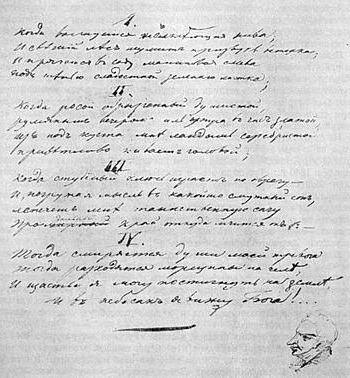 I.
Когда волнуется желтѣющая нива;
И свѣжій лѣсъ шумитъ при звукѣ вѣтерка;
И прячется въ саду малиновая слива
Подъ тѣнью сладостной зеленаго листка;
II
Когда росой обрызганный душистой,
румянымъ вечеромъ иль утра въ часъ златой
изъ подъ куста мнѣ ландышъ серебристой
привѣтливо киваетъ головой;
III
Когда студеный ключь играетъ по оврагу—
И, погружая мысль въ какой то смутный сонъ,
лепечетъ мнѣ таинственную сагу
Про край откуда мчится онъ—
IV.
Тогда смиряется души моей тревога
Тогда расходятся морщины на челѣ,
И щастье я могу постигнуть на землѣ,
И въ небесахъ я вижу Бога!...